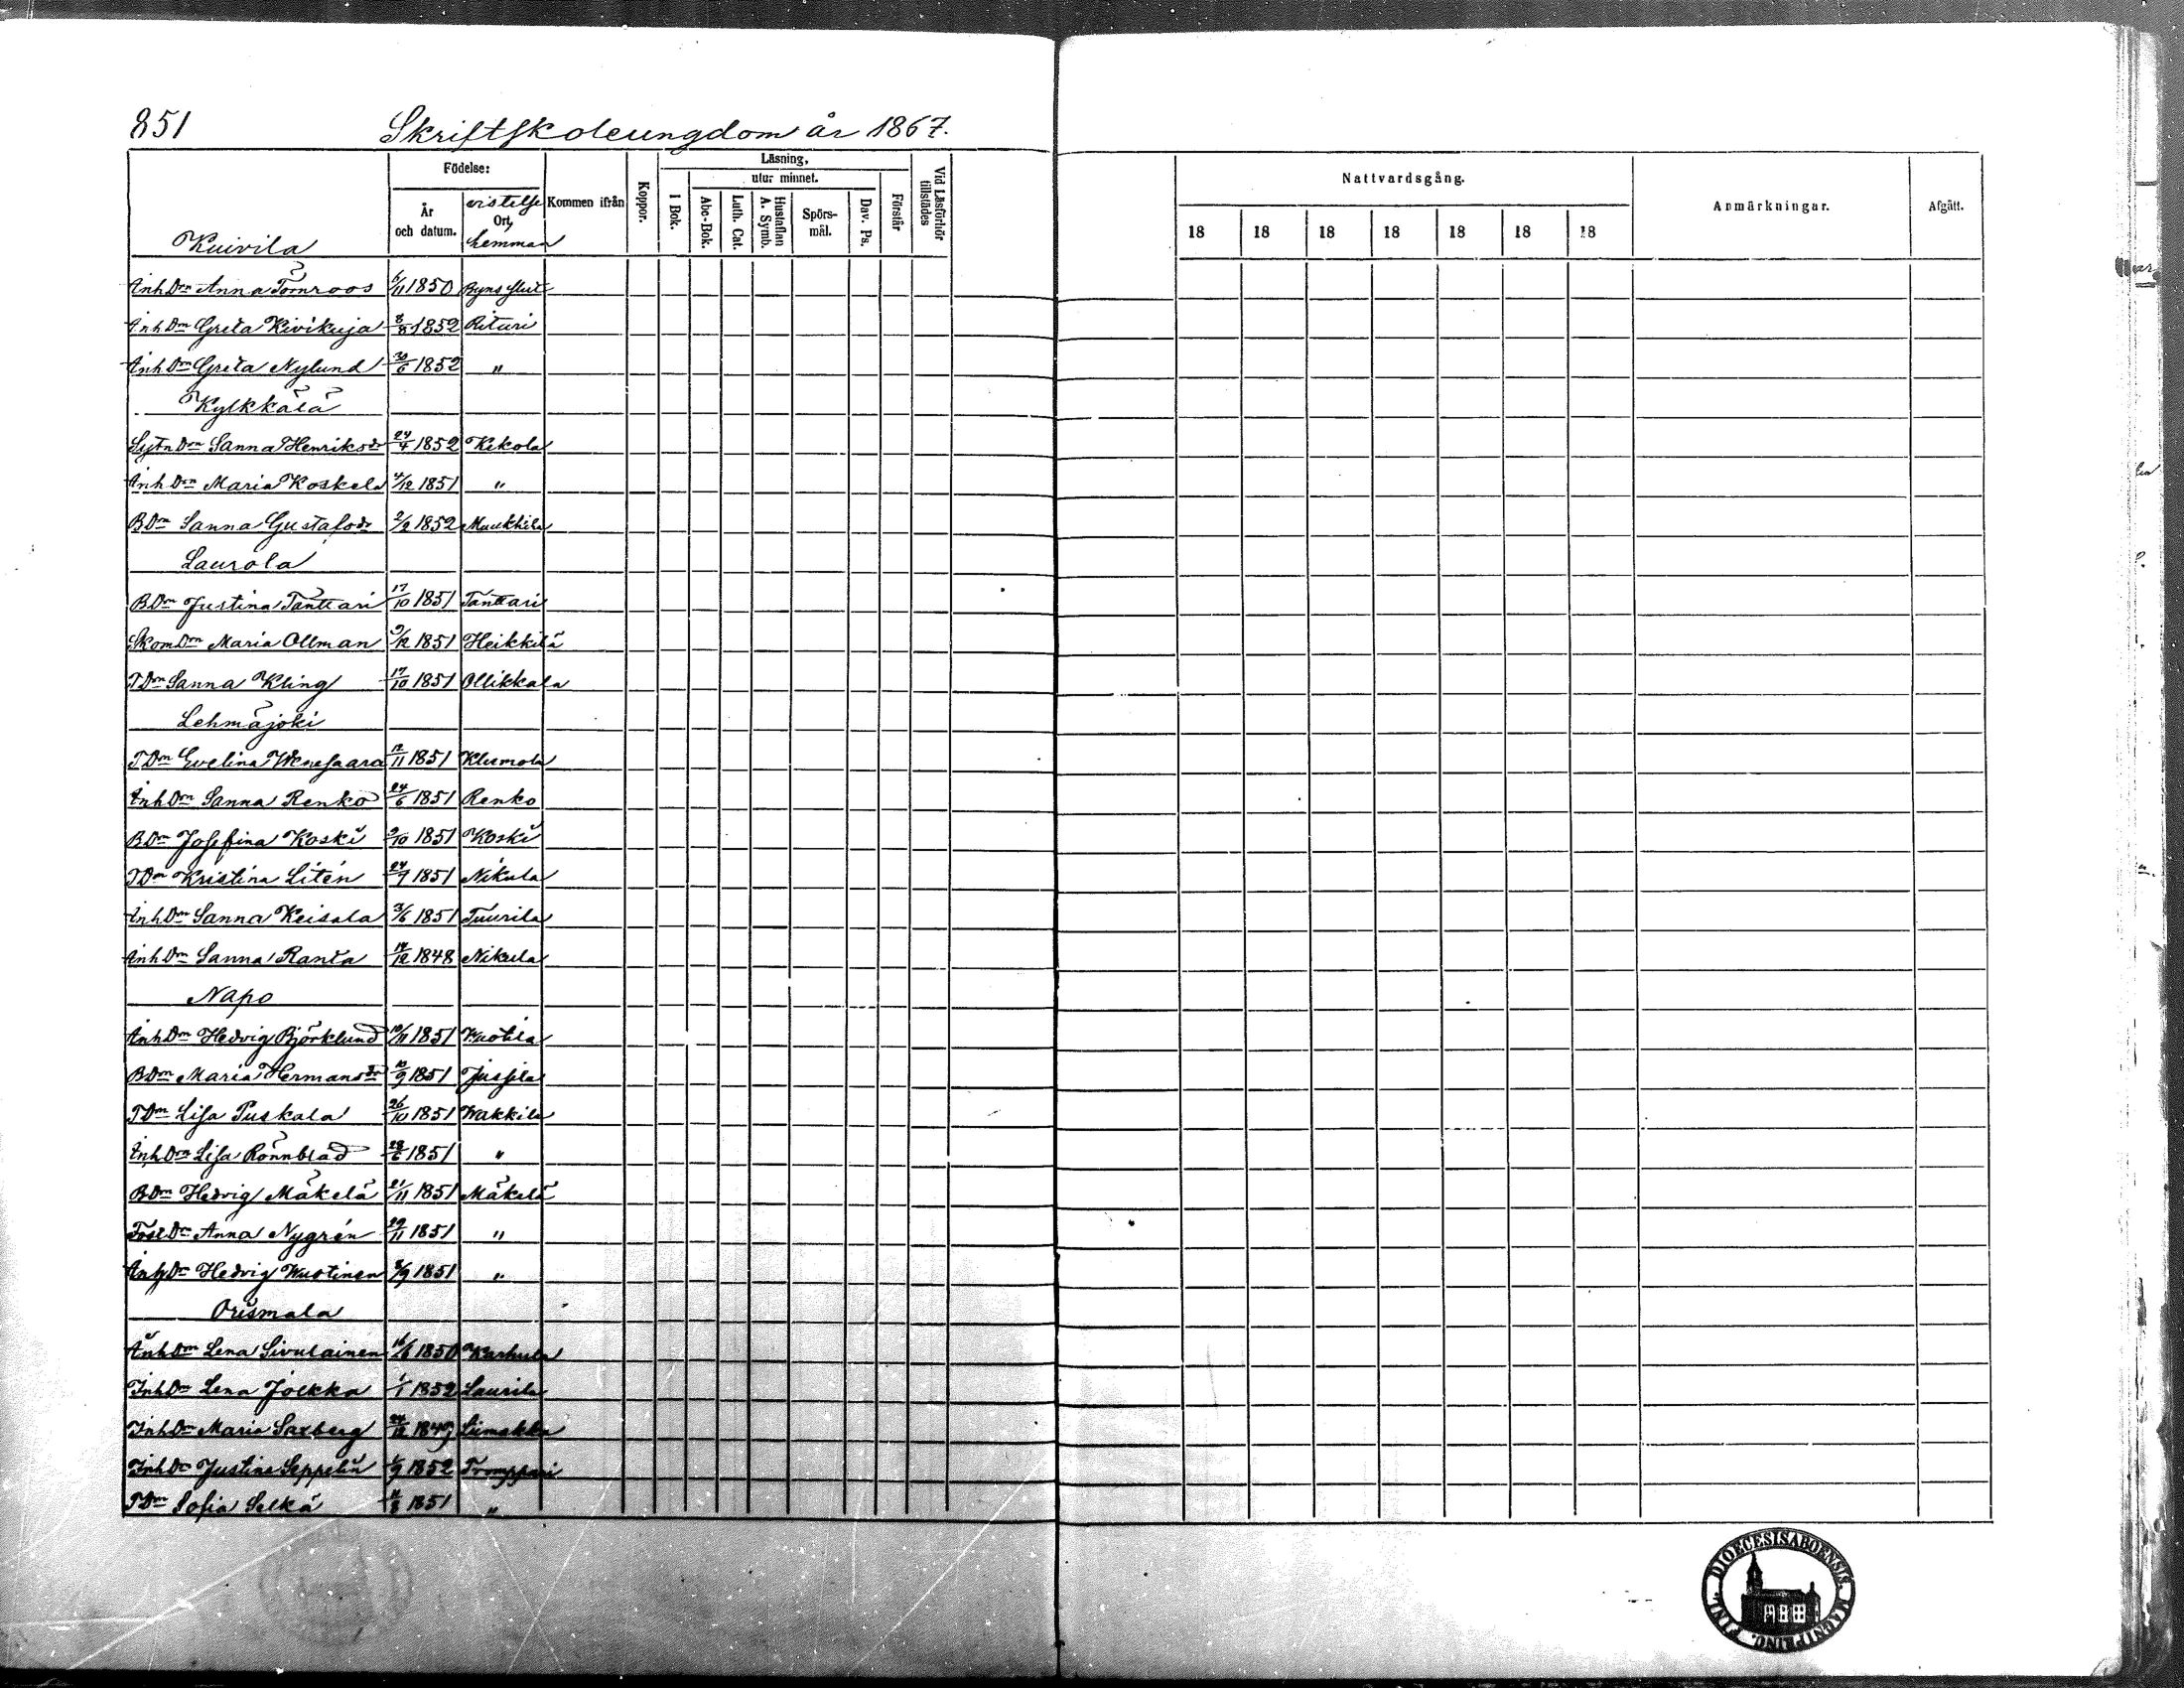 851 Skriftskoleungdom år 1867.
Födelse: Läsning, Nattvardsgång.
utur minnet.
År och datum. vistelse Ort, hemman Kommen ifrån Koppor. I Bok. Abc-Bok. Luth. Cat. Hustaflan A. Symb. Spörs-mål. Dav. Ps. Förstår Vid Läsförhör tillstädes 18 18 18 18 18 18 18 Anmärkningar. Afgått.
Kuivila
Inh Dm Anna Törnroos 6/11 1850
Inh Dm Greta Kivikuja 8/8 1852 Rituri
Inh Dm Greta Nylund 30/6 1852 "
Kylkkälä
Sytn Dm Sanna Henriksdr 24/4 1852 Kekola
Inh Dm Maria Koskela 4/12 1851 "
B Dm Sanna Gustafsdr 2/2 1852
Laurola
B Dm Justina Tänttäri 17/10 1851 Tänttäri
Skom Dm Maria Ollman 9/12 1851 Heikkilä
T Dm Sanna Kling 17/10 1851 Ollikkala
Lehmäjoki
T Dm Evelina Wenesaara 12/11 1851 Klemola
Inh Dm Sanna Renko 24/6 1851 Renko
B Dm Josefina Koski 9/10 1851 Koski
T Dm Kristina Litén 24/7 1851 Nikula
Inh Dm Sanna Keisala 3/6 1851 Tuurila
Inh Dm Sanna Ranta 14/12 1848 Nikula
Napo
Inh Dm Hedvig Björklund 10/11 1851 Wuotila
B Dm Maria Hermansdr 10/9 1851 Jussila
T Dm Lisa Puskala 26/10 1851 Wakkila
Inh Dm Lisa Rönnblad 28/6 1851 "
B Dm Hedvig Mäkelä 21/11 1851 Mäkelä
Dr Anna Nygrén 29/11 1851 "
Inh Dr Hedvig Wuotinen 8/9 1851 "
Orismala
Inh Dm Lena Sivulainen 16/6 1850 Karhula
Inh Dm Lena Jockka 1/1 1852 Laurila
Inh Dm Maria Saxberg 24/12 1849 Liimakka
Inh Dr Justina Seppelin 1/9 1852 Tromppari
T Dm Sofia Selkä 11/8 1851 "
DIOECESIS ABOENSIS MAGNI PRINC. FINL.